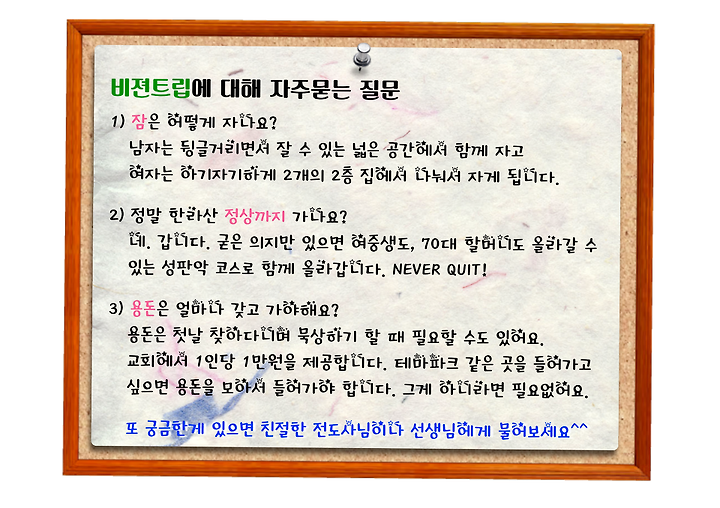 비젼트립에 대해 자주묻는 질문
1) 잠은 어떻게 자나요?
남자는 뒹글거리면서 잘 수 있는 넓은 공간에서 함께 자고
여자는 아기자기하게 2개의 2층 집에서 나눠서 자게 됩니다.
2) 정말 한라산 정상까지 가나요?
네. 갑니다. 굳은 의지만 있으면 여중생도, 70대 할머니도 올라갈 수
있는 성판악 코스로 함께 올라갑니다. NEVER QUIT!
3) 용돈은 얼마나 갖고 가야해요?
용돈은 첫날 찾아다니며 묵상하기 할 때 필요할 수도 있어요.
교회에서 1인당 1만원을 제공합니다. 테마파크 같은 곳을 들어가고
싶으면 용돈을 모아서 들어가야 합니다. 그게 아니라면 필요없어요.
또 궁금한게 있으면 친절한 전도사님이나 선생님에게 물어보세요^^